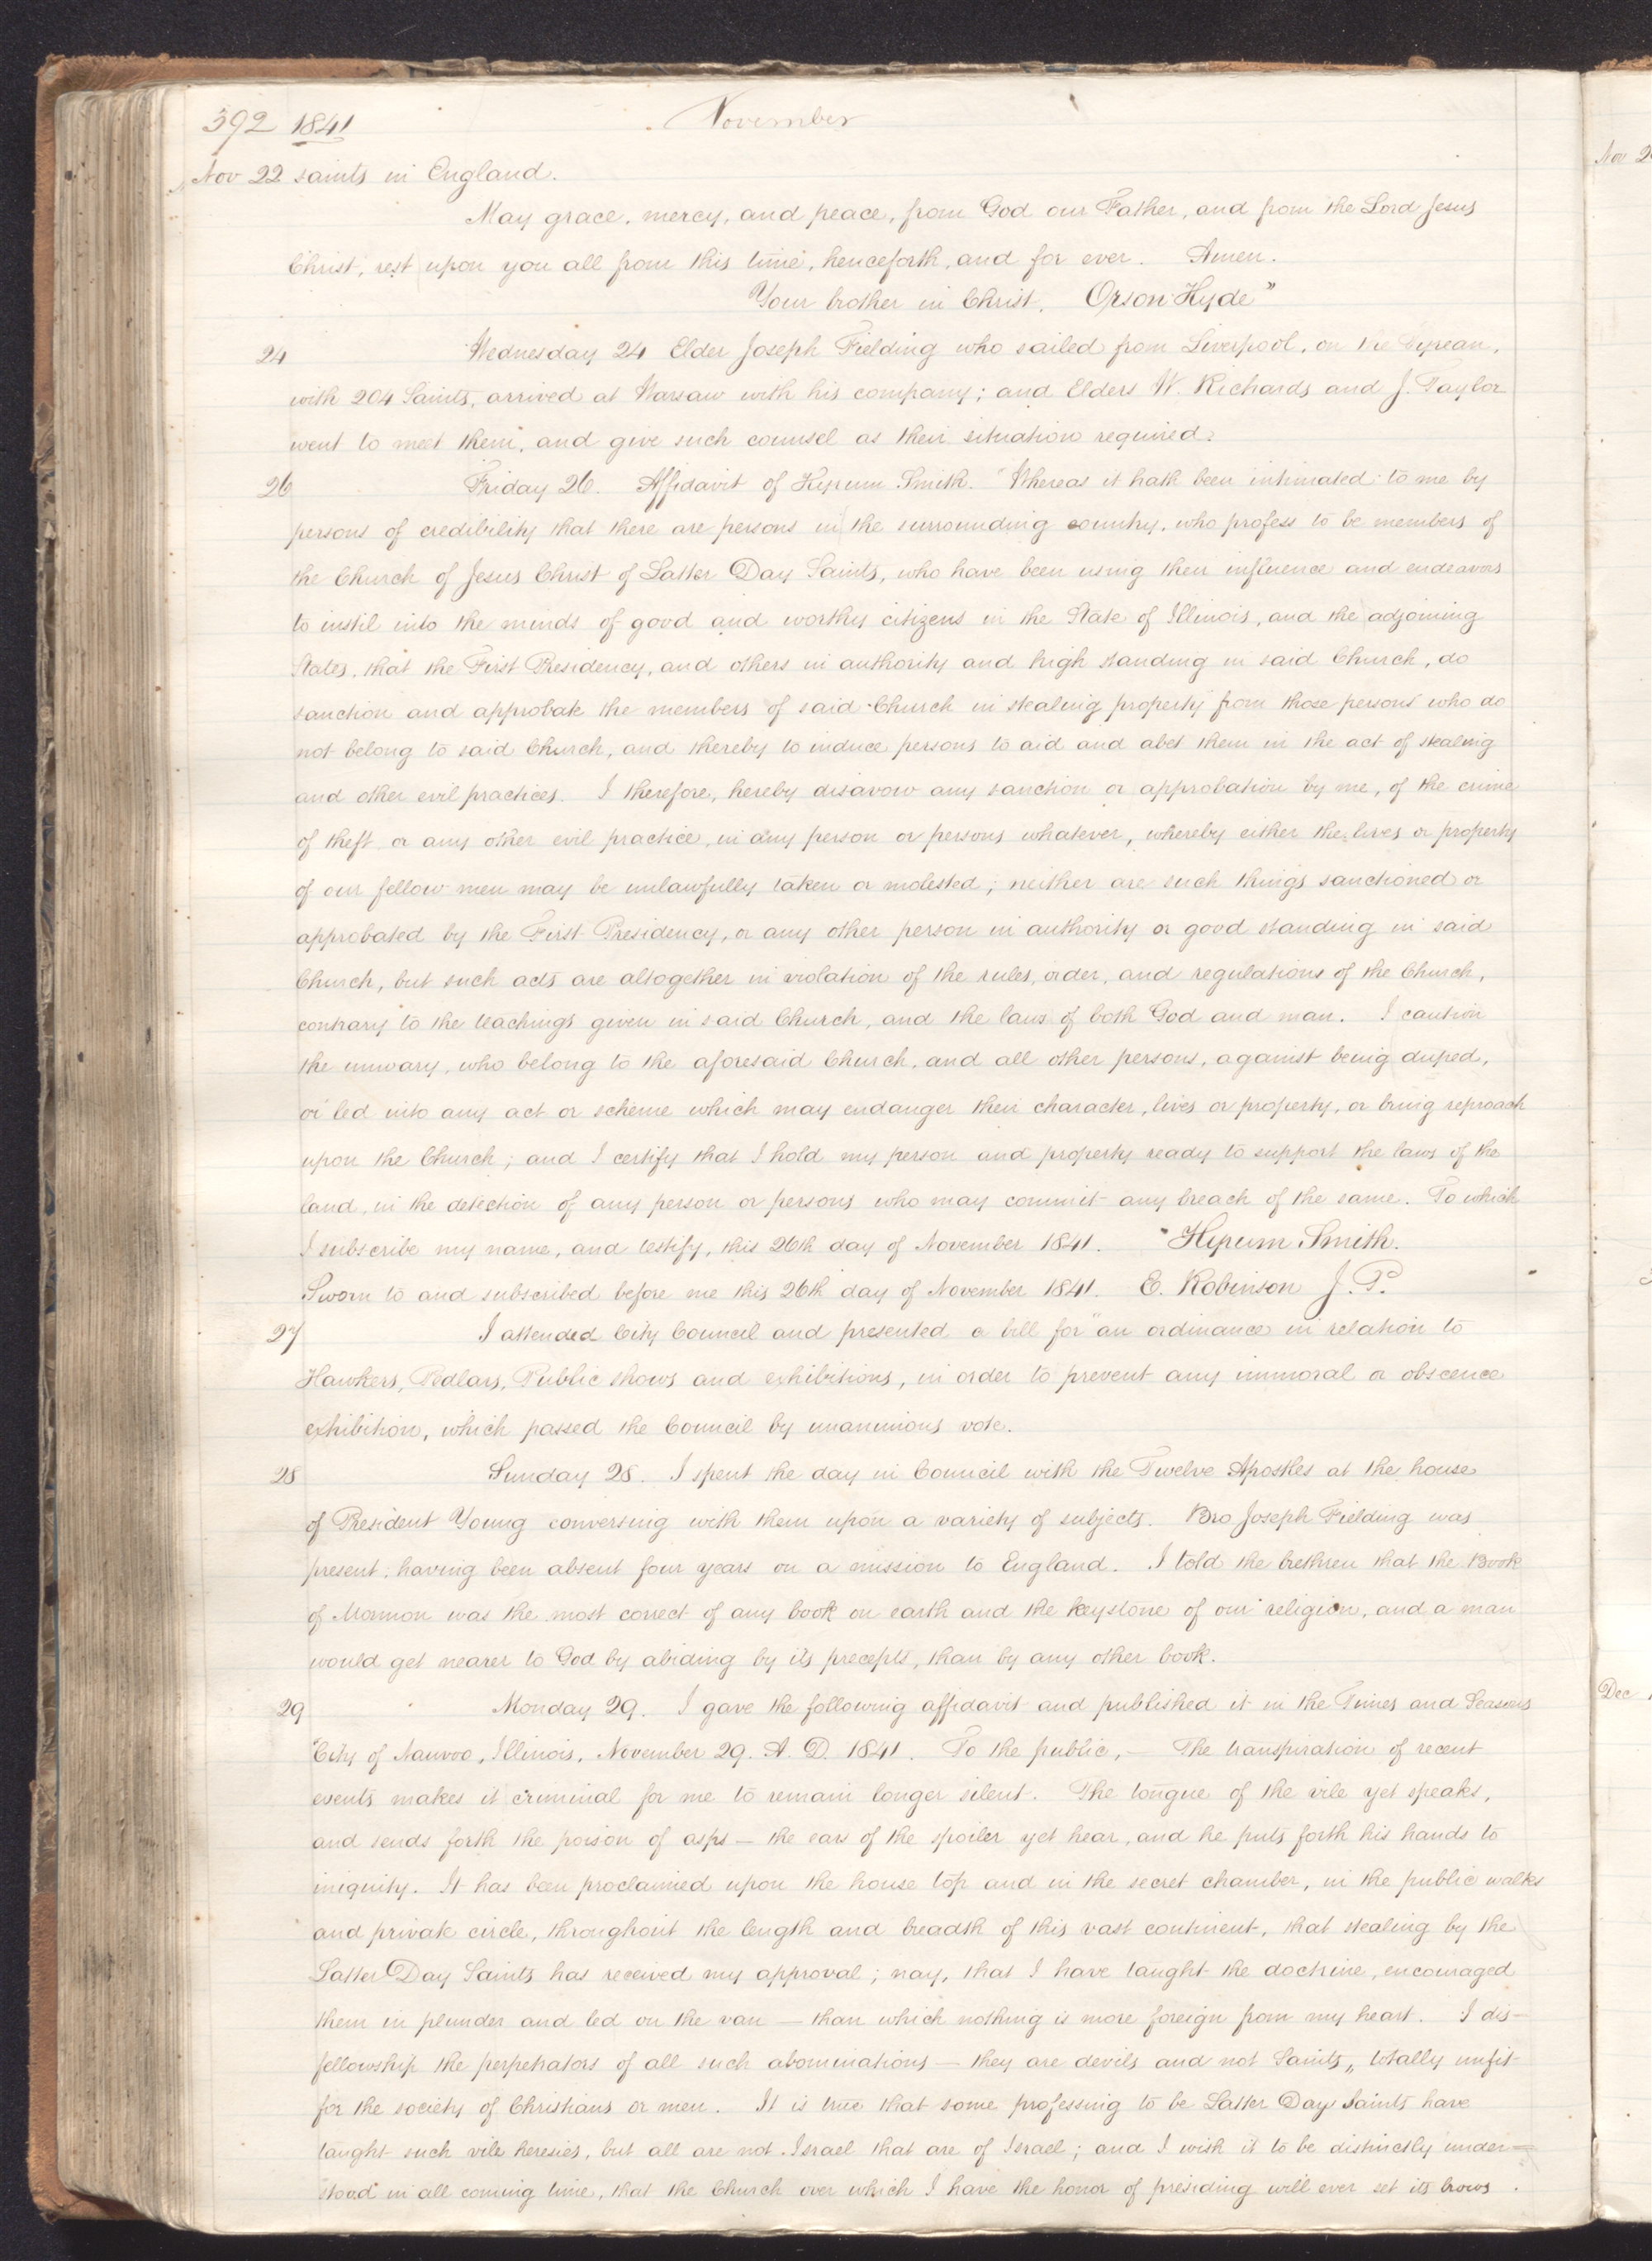 392 1841 November
Nov 22 saints in England.
May grace, mercy, and peace, from God our Father, and from the Lord Jesus
Christ, rest upon you all from this time, henceforth, and for ever. Amen.
Your brother in Christ, Orson Hyde"
24 Wednesday 24 Elder Joseph Fielding who sailed from Liverpool, on the Tyrean,
with 204 Saints, arrived at Warsaw with his company; and Elders W. Richards and J. Taylor
went to meet them, and give such counsel as their situation required.
26 Friday 26. Affidavit of Hyrum Smith. "Whereas it hath been intimated to me by
persons of credibility that there are persons in the surrounding country, who profess to be members of
the Church of Jesus Christ of Latter Day Saints, who have been using their influence and endeavors
to instil into the minds of good and worthy citizens in the State of Illinois, and the adjoining
States, that the First Presidency, and others in authority and high standing in said Church, do
sanction and approbate the members of said Church in stealing property from those persons who do
not belong to said Church, and thereby to induce persons to aid and abet them in the act of stealing
and other evil practices. I therefore, hereby disavow any sanction or approbation by me, of the crime
of theft or any other evil practice, in any person or persons whatever, whereby either the lives or property
of our fellow men may be unlawfully taken or molested; neither are such things sanctioned or
approbated by the First Presidency, or any other person in authority or good standing in said
Church, but such acts are altogether in violation of the rules, order, and regulations of the Church,
contrary to the teachings given in said Church, and the laws of both God and man. I caution
the unwary, who belong to the aforesaid Church, and all other persons, against being duped,
or led into any act or scheme which may endanger their character, lives or property, or bring reproach
upon the Church; and I certify that I hold my person and property ready to support the laws of the
land, in the detection of any person or persons who may commit any breach of the same. To which
I subscribe my name, and testify, this 26th day of November 1841. "Hyrum Smith.
Sworn to and subscribed before me this 26th day of November 1841. E. Robinson J. P.
27 I attended City Council and presented a bill for "an ordinance in relation to
Hawkers, Pedlars, Public shows and exhibitions, in order to prevent any immoral or obscence
exhibition, which passed the Council by unanimous vote.
28 Sunday 28. I spent the day in Council with the Twelve Apostles at the house
of President Young conversing with them upon a variety of subjects. Bro Joseph Fielding was
present, having been absent four years on a mission to England. I told the brethren that the Book
of Mormon was the most correct of any book on earth and the keystone of our religion, and a man
would get nearer to God by abiding by its precepts, than by any other book.
29 Monday 29. I gave the following affidavit and published it in the Times and Seasons
"City of Nauvoo, Illinois, November 29. A. D. 1841. To the public, — The transpiration of recent
events makes it criminal for me to remain longer silent. The tongue of the vile yet speaks,
and sends forth the poison of asps — the ears of the spoiler yet hear, and he puts forth his hands to
iniquity. It has been proclaimed upon the house top and in the secret chamber, in the public walks
and private circle, throughout the length and breadth of this vast continent, that stealing by the
Latter Day Saints has received my approval; nay, that I have taught the doctrine, encouraged
them in plunder and led on the van — than which nothing is more foreign from my heart. I dis-
fellowship the perpetrators of all such abominations — they are devils and not Saints,, totally unfit
for the society of Christians or men. It is true that some professing to be Latter Day Saints have
taught such vile heresies, but all are not Israel that are of Israel; and I wish it to be distinctly under=
stood in all coming time, that the Church over which I have the honor of presiding will ever set its brows
Nov 2
Dec 1